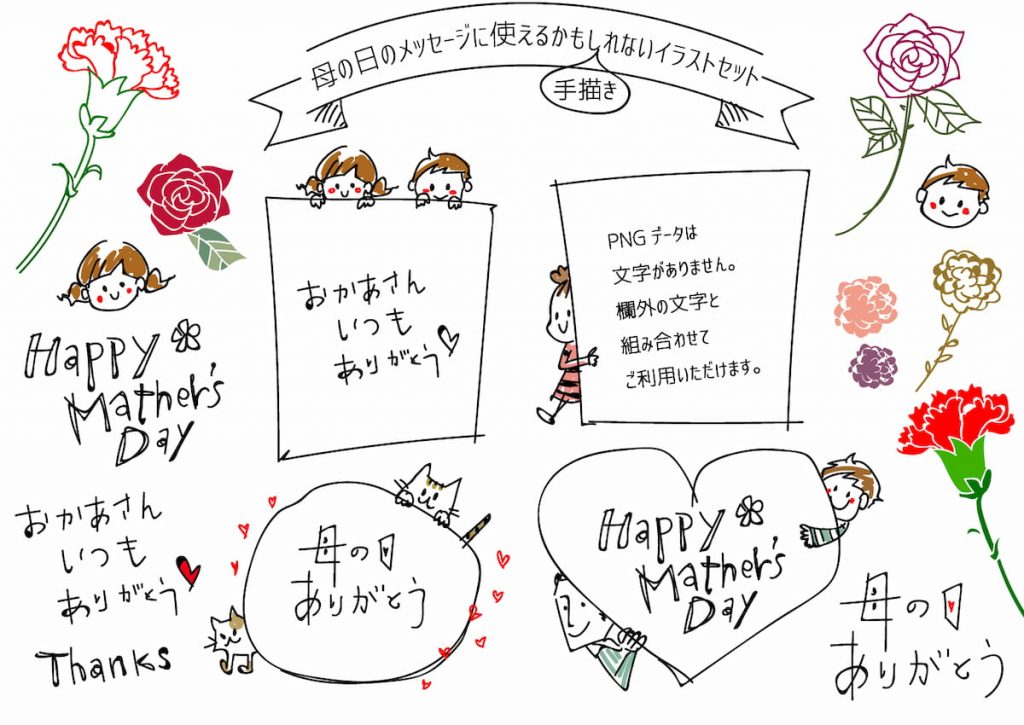 母の日のメッセージに使えるかもしれないイラストセット
手描き
おかあさん
いつも
ありがとう
PNGデータは
文字がありません。
欄外の文字と
組み合わせて
ご利用いただけます。
Happy
Mather's
Day
おかあさん
いつも
ありがとう
Thanks
母の日
ありがとう
Happy
Mather's
Day
母の日
ありがとう